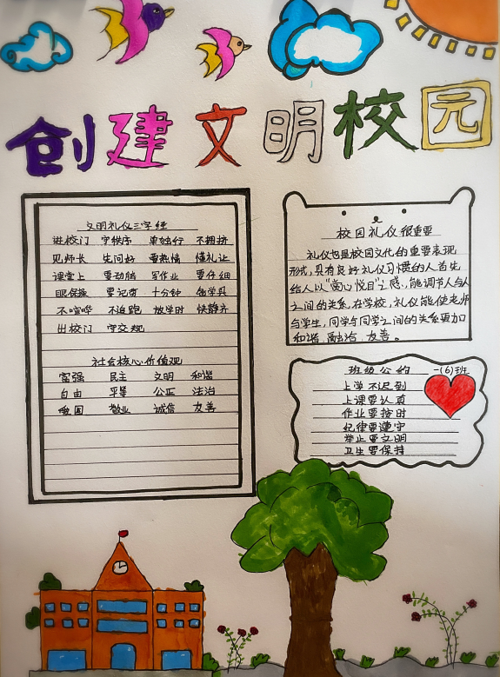 创建文明校园
文明礼仪三字经
进校门 守秩序 单独行 不拥挤
见师长 生问好 要热情 懂礼让
课堂上 要动脑 写作业 要仔细
眼保操 要记牢 十分钟 能学具
不喧哗 不追跑 放学时 快静齐
出校门 守交规
社会核心价值观
富强 民主 文明 和谐
自由 平等 公正 法治
爱国 敬业 诚信 友善
校园礼仪很重要
礼仪也是校园文化的重要表现
形式,具有良好礼仪习惯的人首先
给人以“赏心悦目”之感,能调节人与人
之间的关系,在学校,礼仪能使老师
与学生,同学与同学之间的关系更加
和谐 融洽 友善。
班级公约 一(6)班
上学不迟到
上课要认真
作业要按时
纪律要遵守
举止要文明
卫生要保持